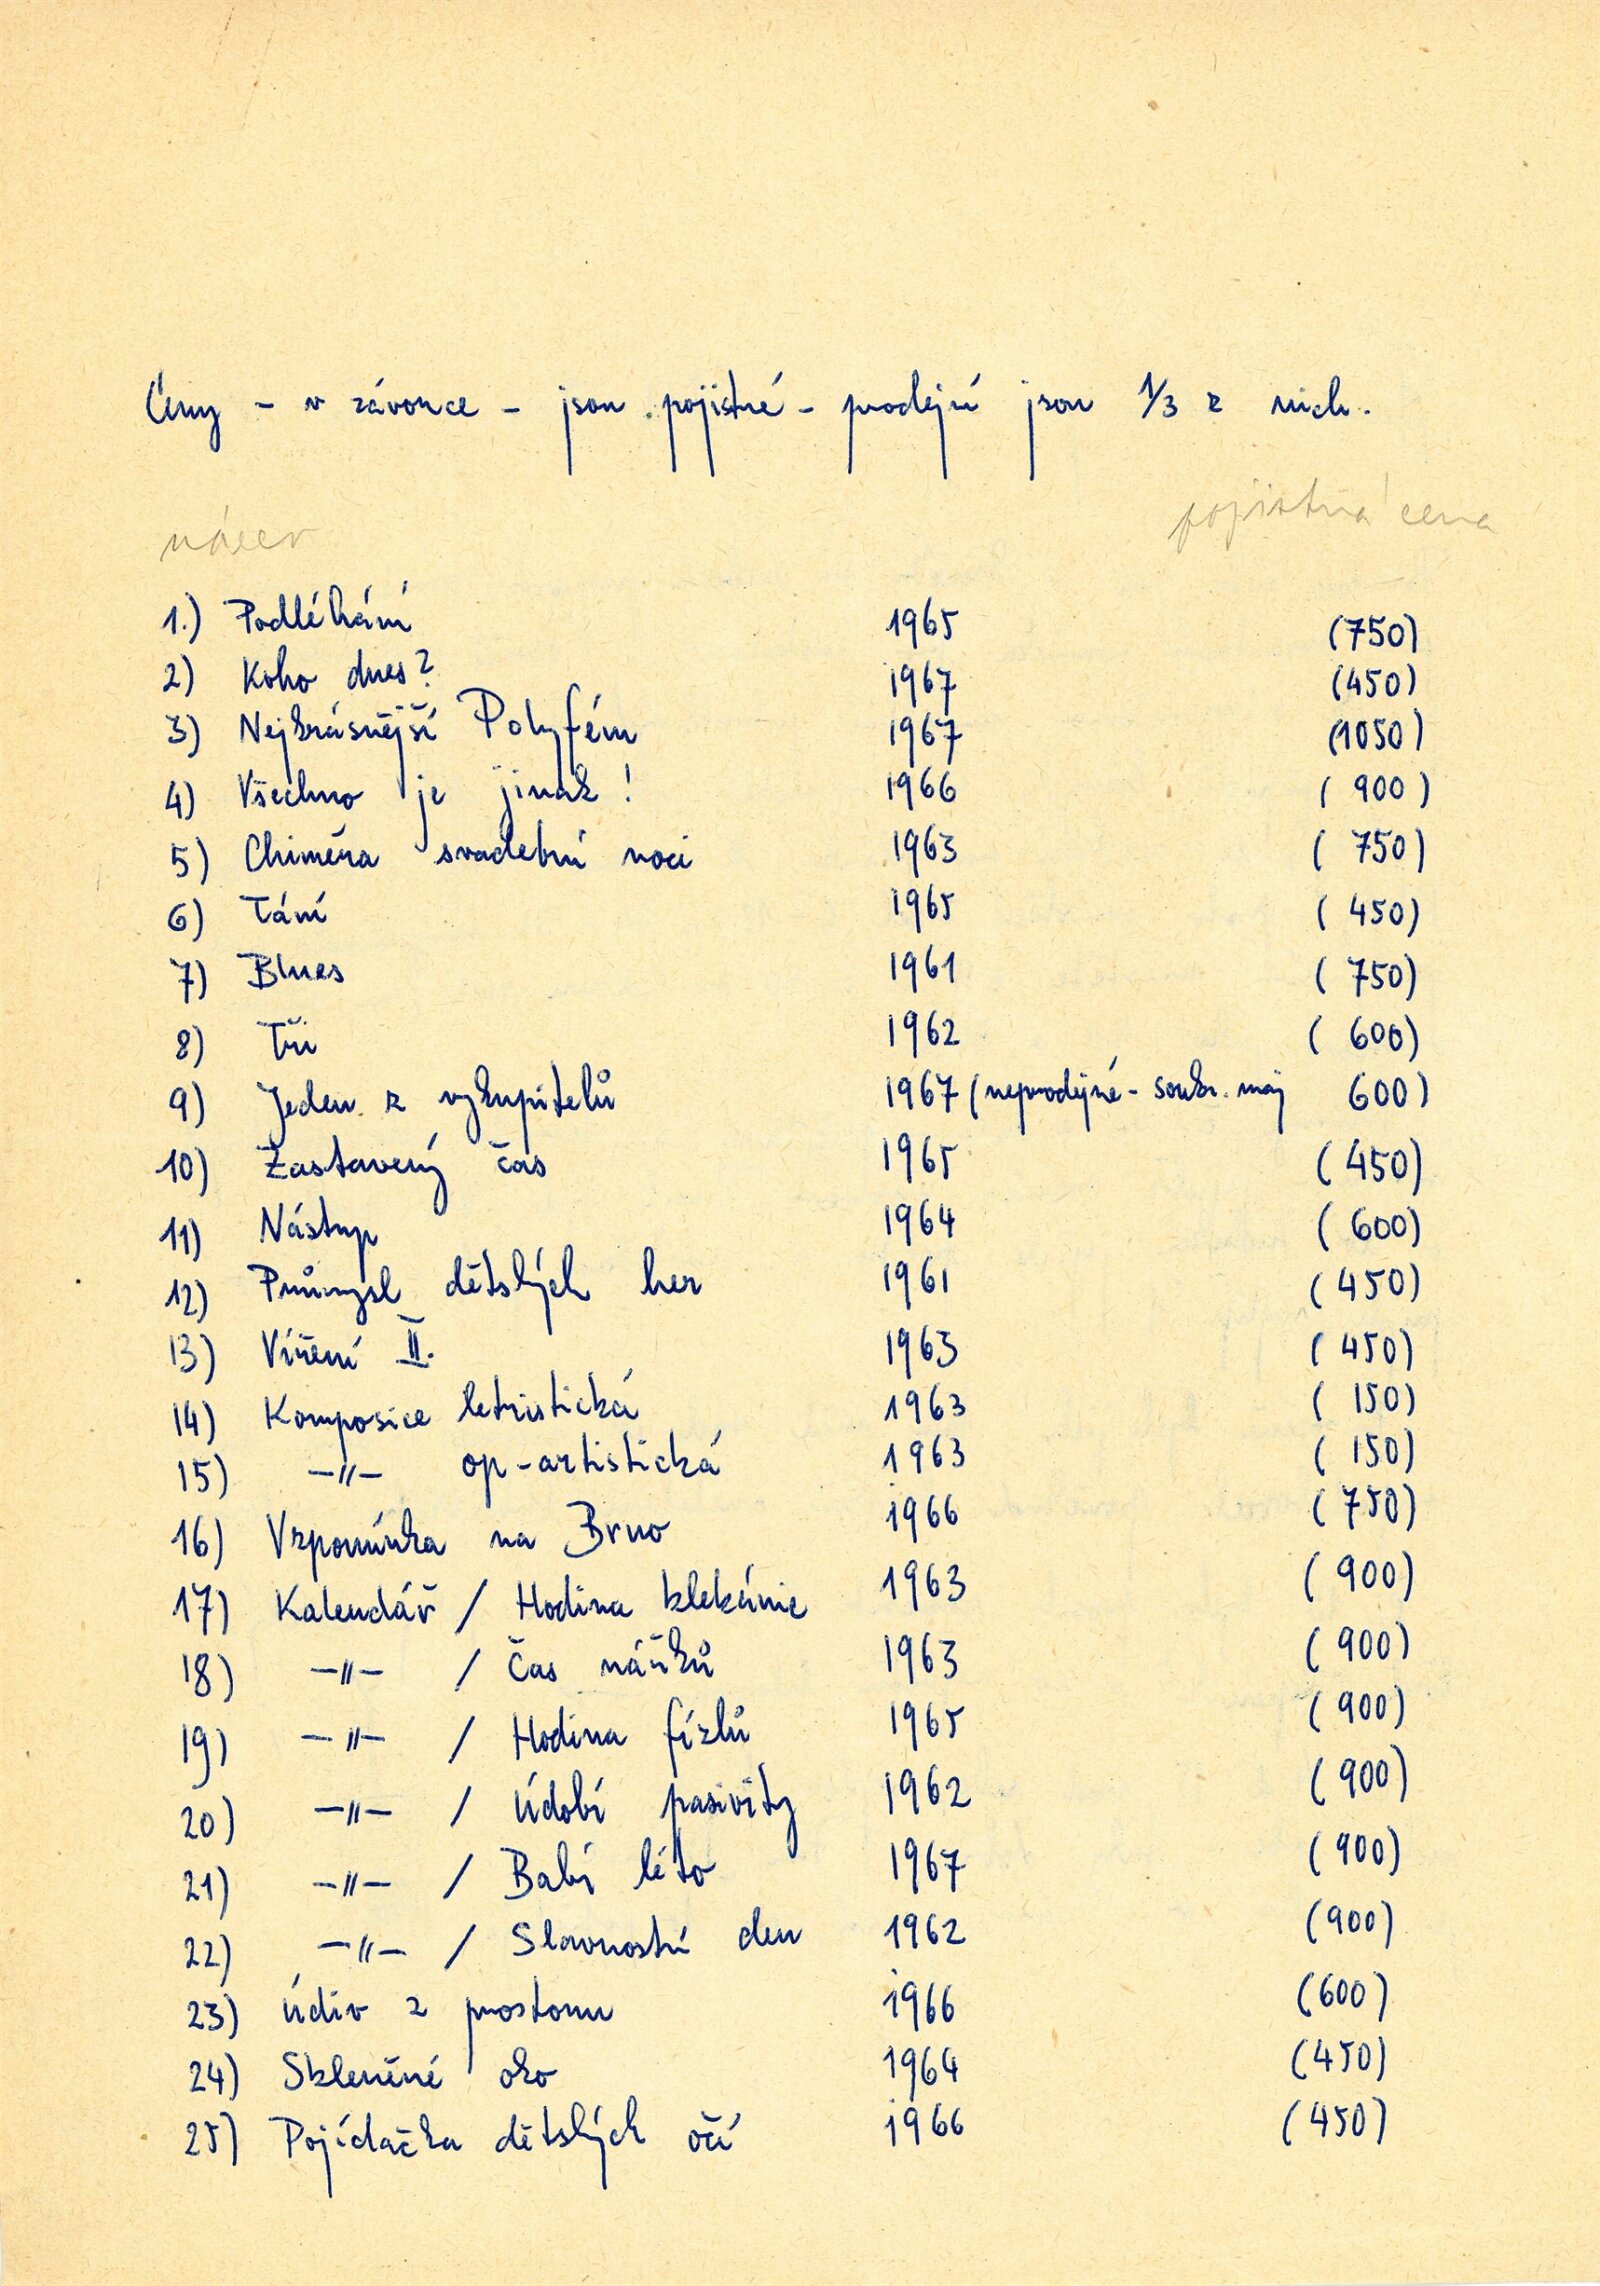 Ceny - v závorce - jsou pojistné - prodejní jsou 1/3 z nich.
název pojistná cena
1.) Podléhání 1965 (750)
2) Koho dnes? 1967 (450)
3) Nejkrásnější Polyfém 1967 (1050)
4) Všechno je jinak! 1966 (900)
5) Chiméra svadební noci 1963 (750)
6) Tání 1965 (450)
7) Blues 1961 (750)
8) Tři 1962 (600)
9) Jeden z vykupitelů 1967 (neprodejné - soukr. maj 600)
10) Zastavený čas 1965 (450)
11) Nástup 1964 (600)
12) Průmysl dětských her 1961 (450)
13) Víření II. 1963 (450)
14) Komposice letristická 1963 (150)
15) -"- op-artistická 1963 (150)
16) Vzpomínka na Brno 1966 (750)
17) Kalendář / Hodina klekánic 1963 (900)
18) -"- / Čas nářků 1963 (900)
19) -"- / Hodina fízlů 1965 (900)
20) -"- / Údobí pasivity 1962 (900)
21) -"- / Babí léto 1967 (900)
22) -"- / Slavnostní den 1962 (900)
23) Údiv z prostoru 1966 (600)
24) Skleněné oko 1964 (450)
25) Pojídačka dětských očí 1966 (450)